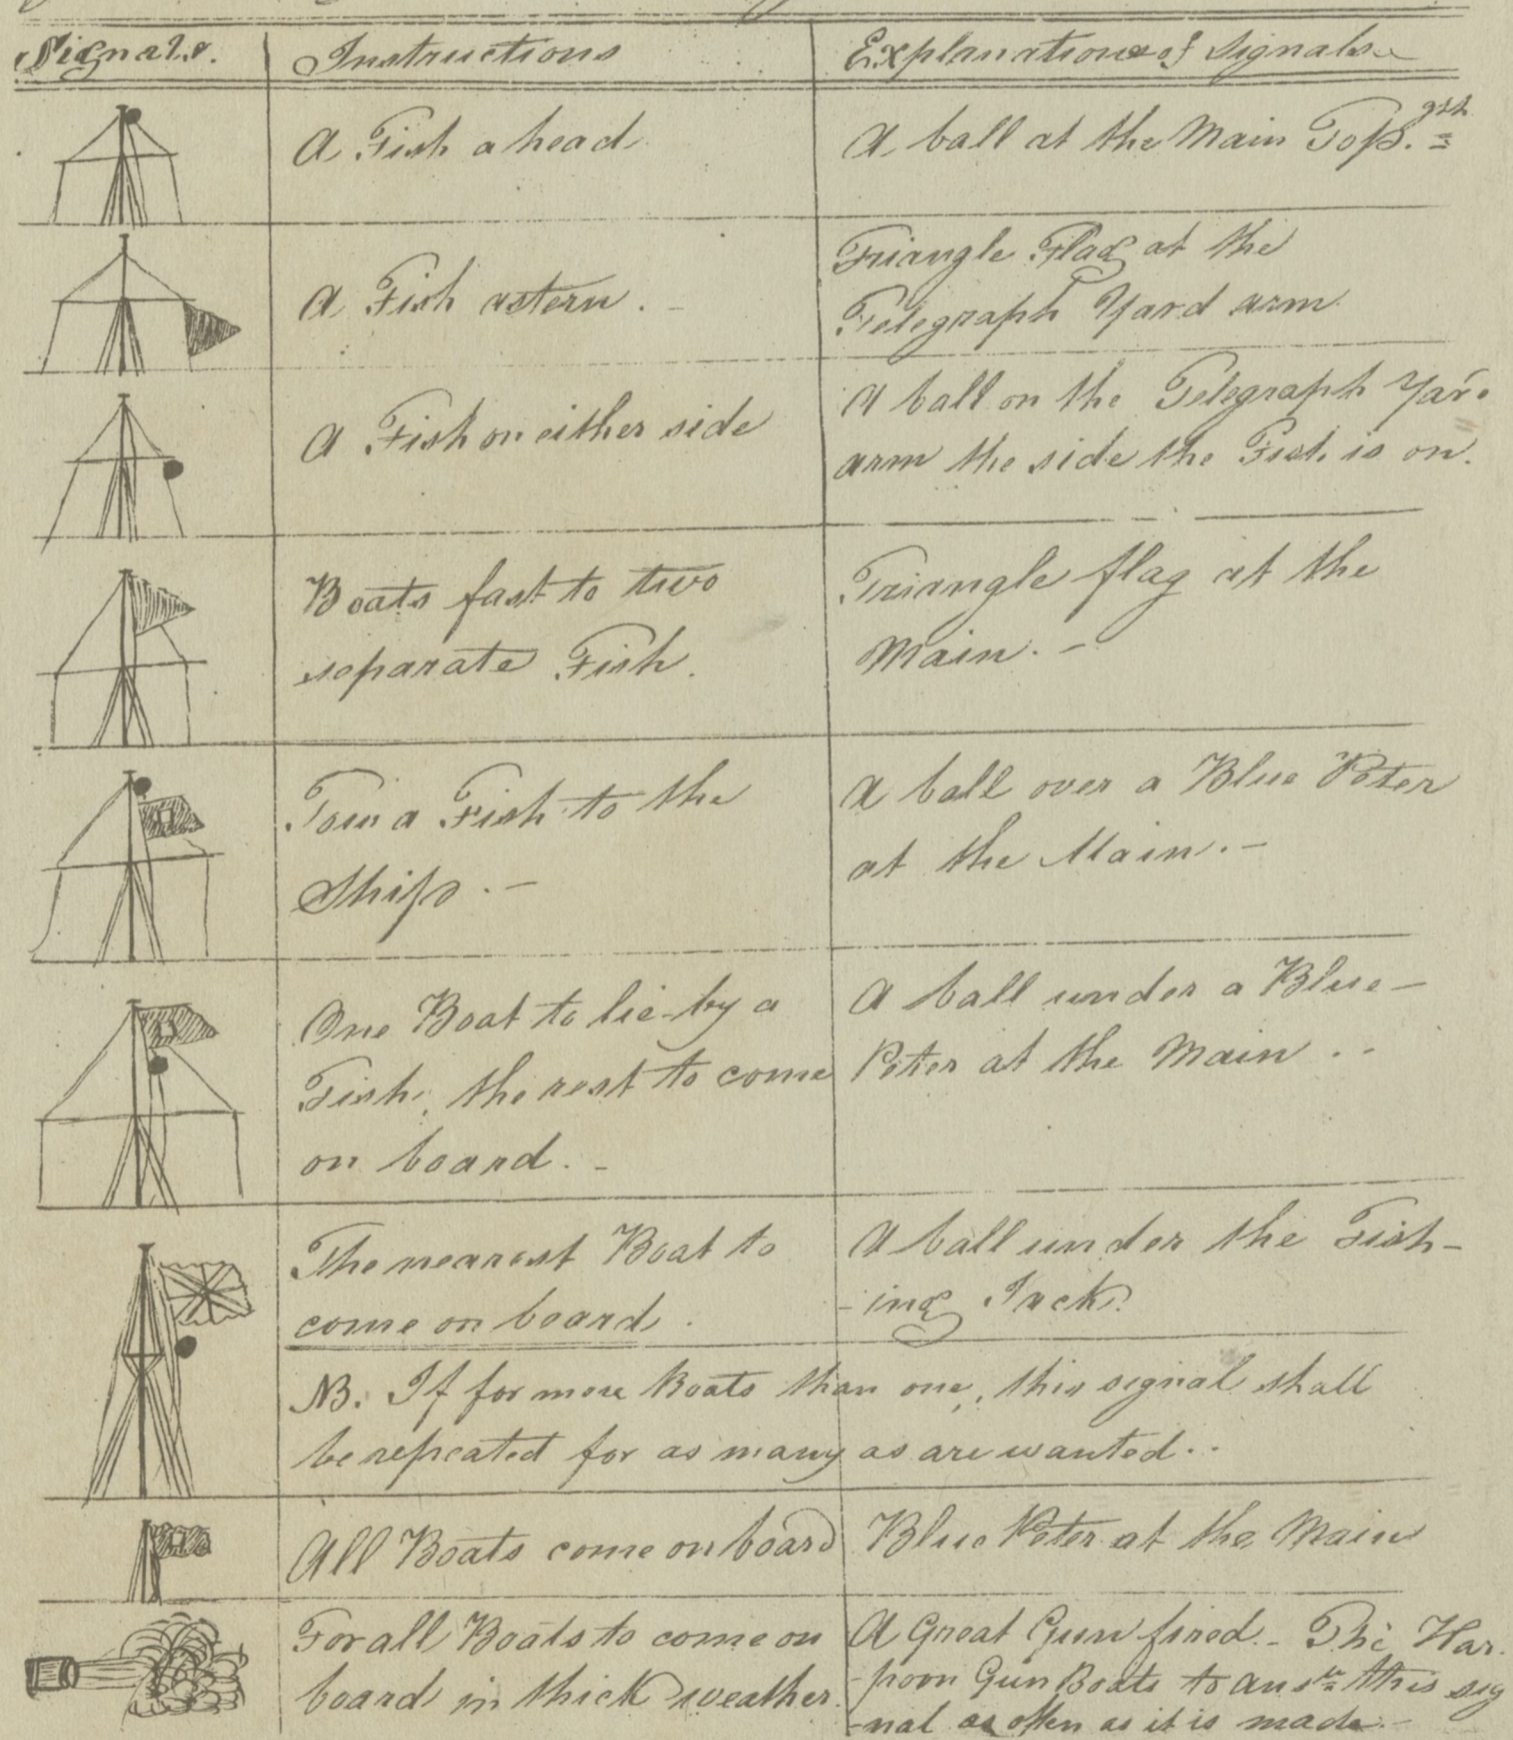 Signals.
Instructions
Explanation of Signals
A Fish a head
A ball at the Main Top. gtt
A Fish astern. -
Triangle Flag at the
Telegraph Yard arm
A Fish on either side
A ball on the Telegraph Yar.
arm the side the Fish is on.
Boats fast to two
separate Fish.
Triangle flag at the
Main. -
Tow a Fish to the
Ship. -
A ball over a Blue Peter
at the Main. -
One Boat to lie-by a
Fish, the rest to come
on board. -
A ball under a Blue-
Peter at the Main . .
The nearest Boat to
come on board.
A ball under the Fish-
-ing Jack.
NB. If for more Boats than one, this signal shall
be repeated for as many as are wanted. .
All Boats come on board
Blue Peter at the Main
For all Boats to come on
board in thick weather.
A Great Gun fired. - The Har
-poon Gun Boats to answr this sig
-nal as often as it is made. -